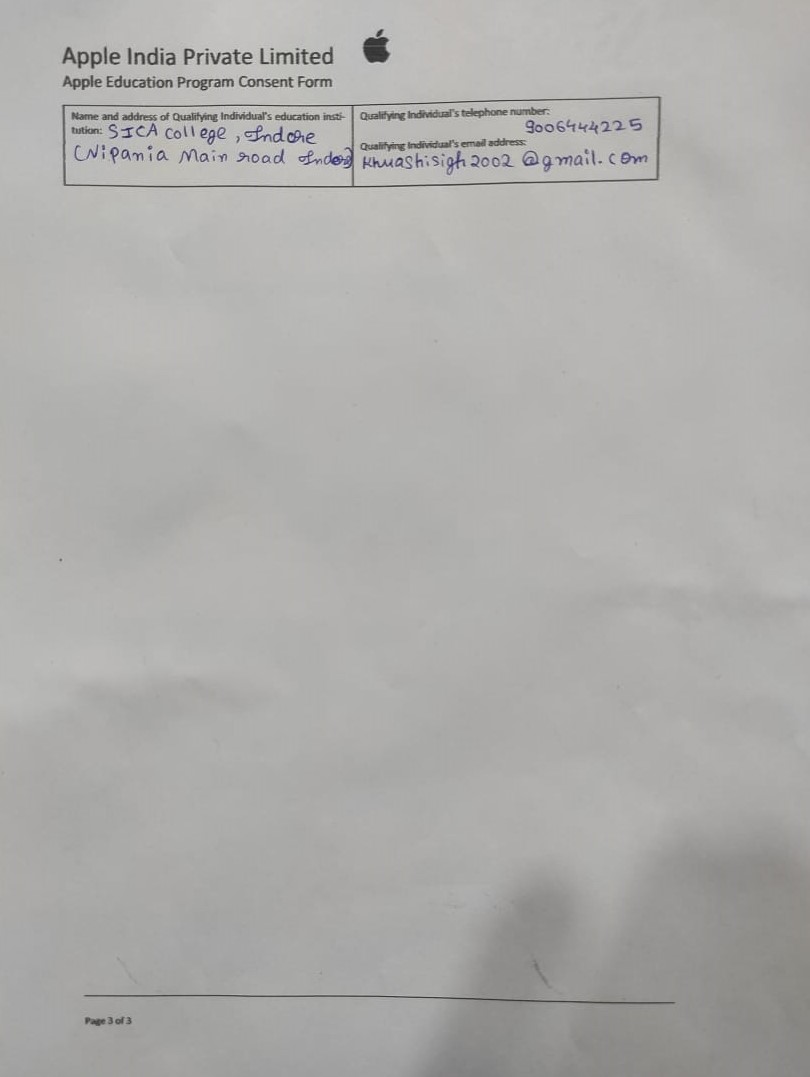 Apple India Private Limited
Apple Education Program Consent Form
Name and address of Qualifying Individual's education insti-
tution: SICA college, Indore
(Nipania Main road Indore)
Qualifying Individual's telephone number:
9006444225
Qualifying Individual's email address:
khuashisigh2002@gmail.com
Page 3 of 3